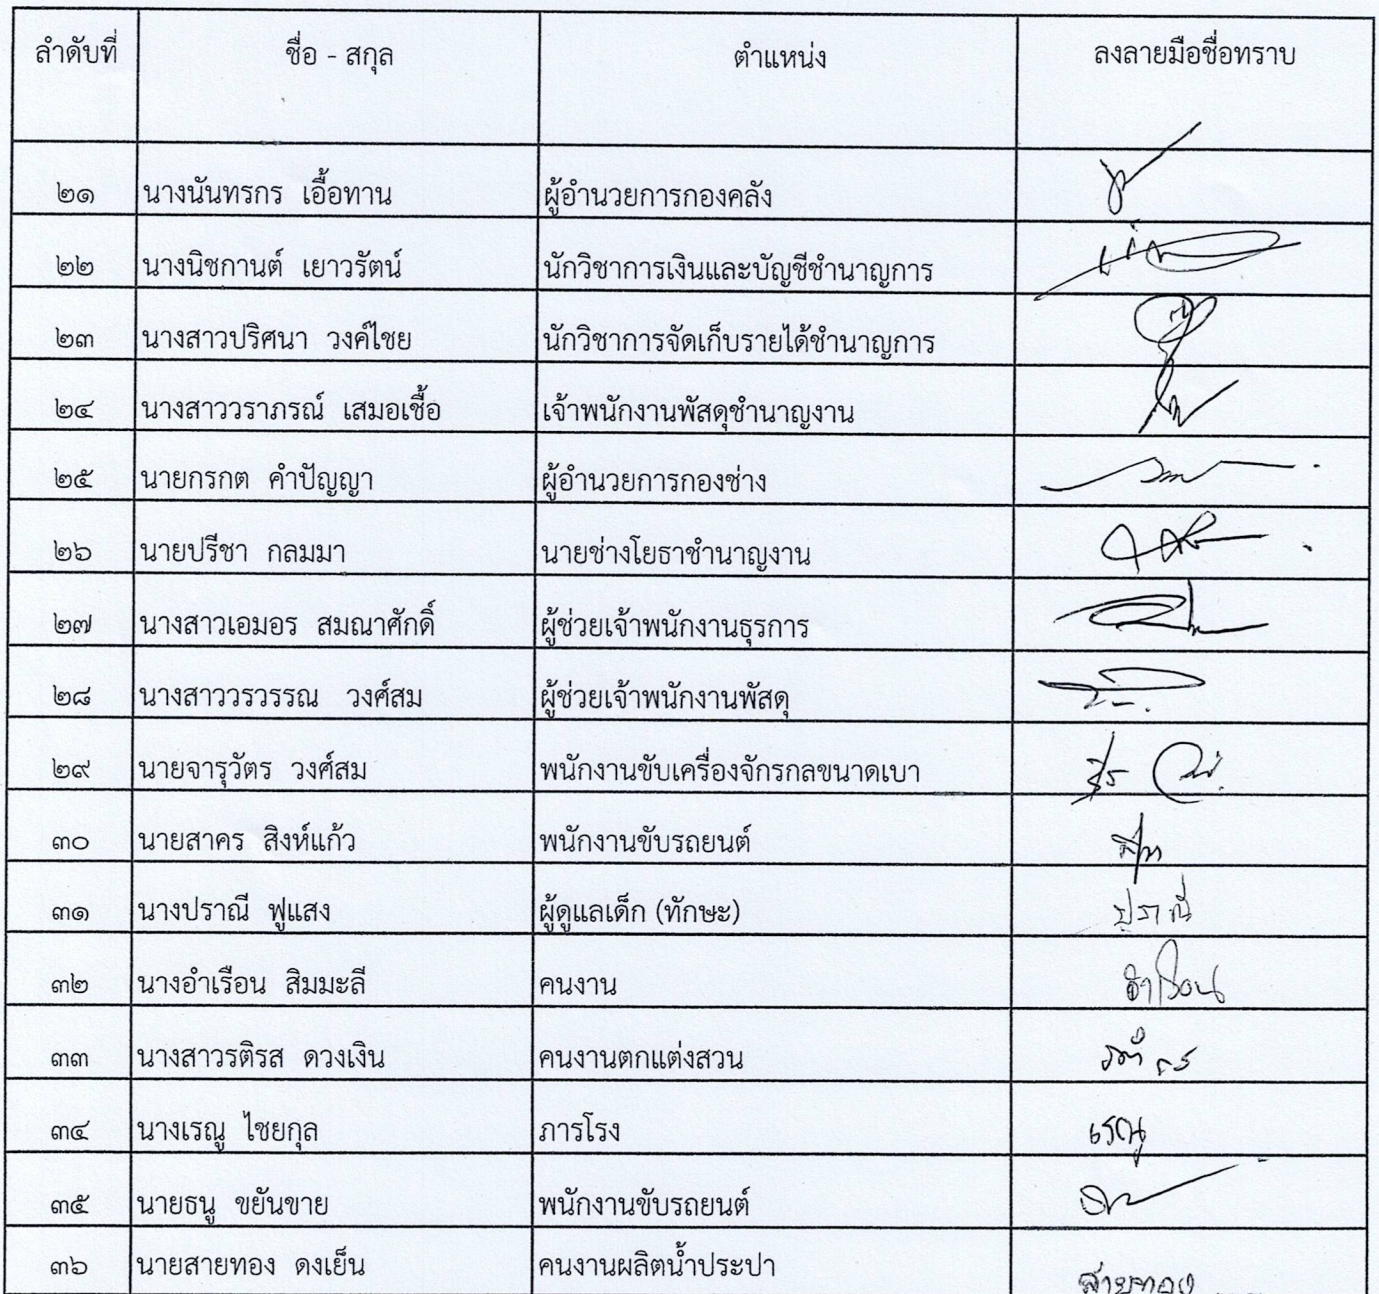 ลำดับที่ ชื่อ - สกุล ตำแหน่ง ลงลายมือชื่อทราบ
๒๑ นางนันทรกร เอื้อทาน ผู้อำนวยการกองคลัง
๒๒ นางนิชกานต์ เยาวรัตน์ นักวิชาการเงินและบัญชีชำนาญการ
๒๓ นางสาวปริศนา วงค์ไชย นักวิชาการจัดเก็บรายได้ชำนาญการ
๒๔ นางสาววราภรณ์ เสมอเชื้อ เจ้าพนักงานพัสดุชำนาญงาน
๒๕ นายกรกต คำปัญญา ผู้อำนวยการกองช่าง
๒๖ นายปรีชา กลมมา นายช่างโยธาชำนาญงาน
๒๗ นางสาวเอมอร สมณาศักดิ์ ผู้ช่วยเจ้าพนักงานธุรการ
๒๘ นางสาววรวรรณ วงศ์สม ผู้ช่วยเจ้าพนักงานพัสดุ
๒๙ นายจารุวัตร วงศ์สม พนักงานขับเครื่องจักรกลขนาดเบา
๓๐ นายสาคร สิงห์แก้ว พนักงานขับรถยนต์
๓๑ นางปราณี ฟูแสง ผู้ดูแลเด็ก (ทักษะ) ปราณี
๓๒ นางอำเรือน สิมมะลี คนงาน อำเรือน
๓๓ นางสาวรติรส ดวงเงิน คนงานตกแต่งสวน
๓๔ นางเรณู ไชยกุล ภารโรง เรณู
๓๕ นายธนู ขยันขาย พนักงานขับรถยนต์
๓๖ นายสายทอง ดงเย็น คนงานผลิตน้ำประปา สายทอง